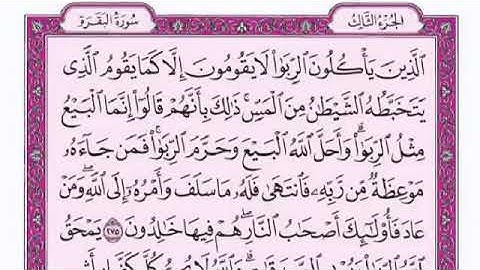 الجزء الثالث
سورة البقرة
ٱلَّذِينَ يَأۡكُلُونَ ٱلرِّبَوٰاْ لَا يَقُومُونَ إِلَّا كَمَا يَقُومُ ٱلَّذِي
يَتَخَبَّطُهُ ٱلشَّيۡطَٰنُ مِنَ ٱلۡمَسِّۚ ذَٰلِكَ بِأَنَّهُمۡ قَالُوٓاْ إِنَّمَا ٱلۡبَيۡعُ
مِثۡلُ ٱلرِّبَوٰاْۗ وَأَحَلَّ ٱللَّهُ ٱلۡبَيۡعَ وَحَرَّمَ ٱلرِّبَوٰاْۚ فَمَن جَآءَهُۥ
مَوۡعِظَةٞ مِّن رَّبِّهِۦ فَٱنتَهَىٰ فَلَهُۥ مَا سَلَفَ وَأَمۡرُهُۥٓ إِلَى ٱللَّهِۖ وَمَنۡ
عَادَ فَأُوْلَٰٓئِكَ أَصۡحَٰبُ ٱلنَّارِۖ هُمۡ فِيهَا خَٰلِدُونَ ٢٧٥ يَمۡحَقُ